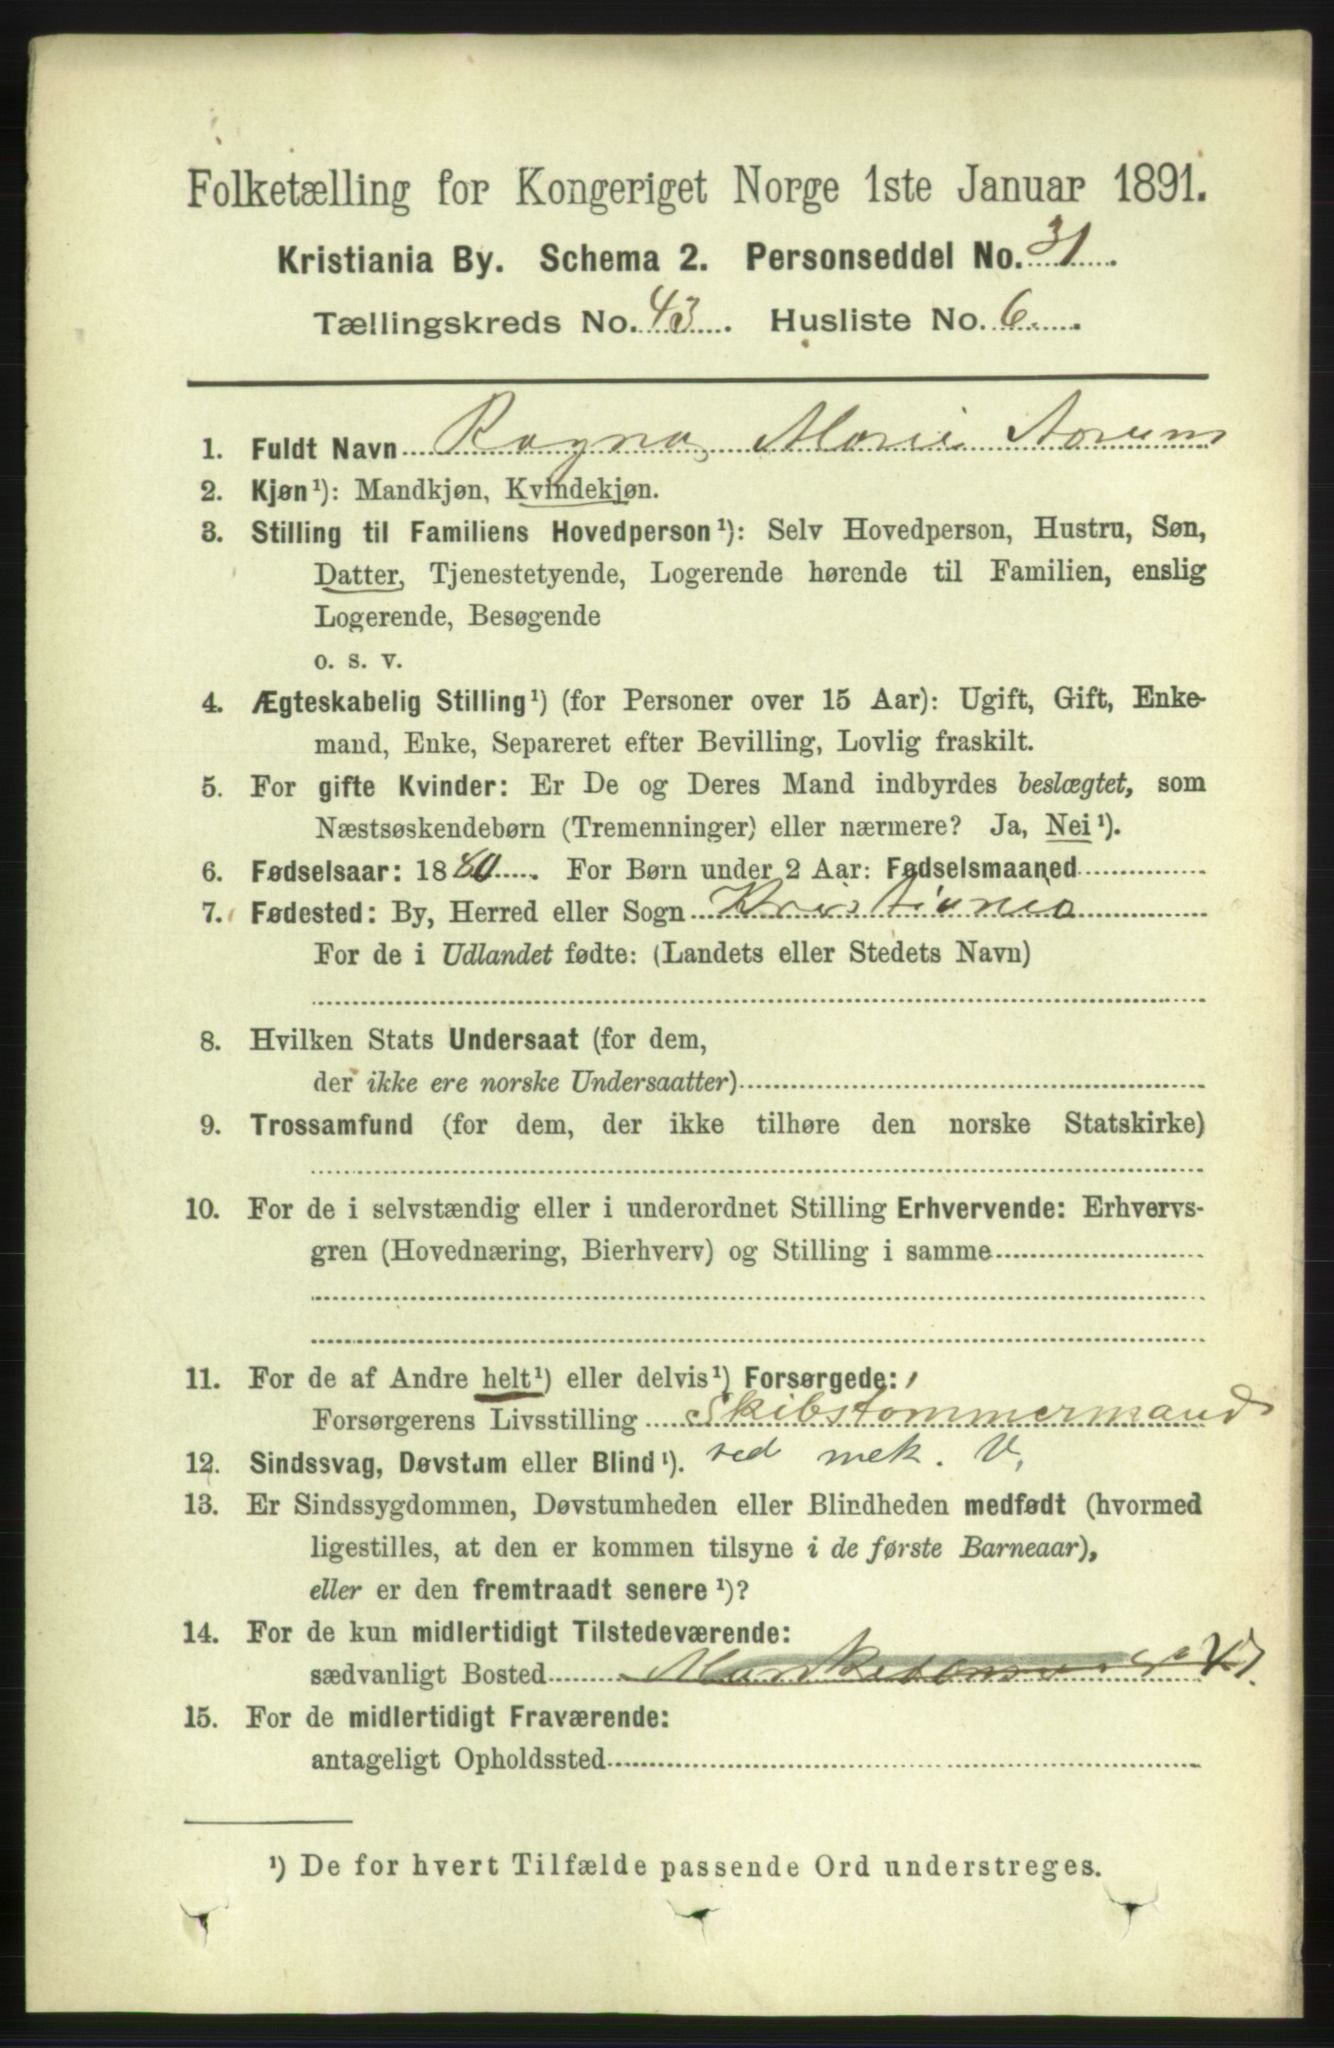 Folketælling for Kongeriget Norge 1ste Januar 1891.
Kristiania By. Schema 2. Personseddel No. 31.
Tællingskreds No. 43. Husliste No. 6.
1. Fuldt Navn Ragna Marie
2. Kjøn¹): Mandkjøn, Kvindekjøn.
3. Stilling til Familiens Hovedperson¹): Selv Hovedperson, Hustru, Søn,
Datter, Tjenestetyende, Logerende hørende til Familien, enslig
Logerende, Besøgende
o. s. v.
4. Ægteskabelig Stilling¹) (for Personer over 15 Aar): Ugift, Gift, Enke-
mand, Enke, Separeret efter Bevilling, Lovlig fraskilt.
5. For gifte Kvinder: Er De og Deres Mand indbyrdes beslægtet, som
Næstsøskendebørn (Tremenninger) eller nærmere? Ja, Nei¹).
6. Fødselsaar: 1880. For Børn under 2 Aar: Fødselsmaaned
7. Fødested: By, Herred eller Sogn Kristiania
For de i Udlandet fødte: (Landets eller Stedets Navn)
8. Hvilken Stats Undersaat (for dem,
der ikke ere norske Undersaatter)
9. Trossamfund (for dem, der ikke tilhøre den norske Statskirke)
10. For de i selvstændig eller i underordnet Stilling Erhvervende: Erhvervs-
gren (Hovednæring, Bierhverv) og Stilling i samme
11. For de af Andre helt¹) eller delvis¹) Forsørgede:
Forsørgerens Livsstilling Skibstømmermand
12. Sindssvag, Døvstum eller Blind¹). ved mek. V.
13. Er Sindssygdommen, Døvstumheden eller Blindheden medfødt (hvormed
ligestilles, at den er kommen tilsyne i de første Barneaar),
eller er den fremtraadt senere¹)?
14. For de kun midlertidigt Tilstedeværende:
sædvanligt Bosted
15. For de midlertidigt Fraværende:
antageligt Opholdssted
¹) De for hvert Tilfælde passende Ord understreges.